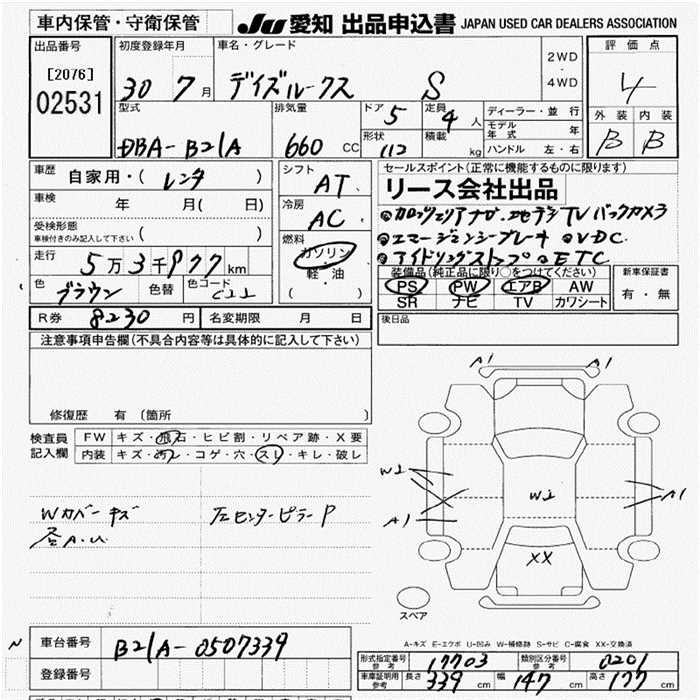 車内保管・守衛保管
JU 愛知 出品申込書 JAPAN USED CAR DEALERS ASSOCIATION
出品番号
[2076]
02531
初度登録年月
30 7 月
車名・グレード
デイズルークス S
2WD
・
4WD
評価点
4
外装 内装
B B
型式
DBA-B21A
排気量
660 CC
ドア 5
形状 112
定員 4 人
積載 kg
ディーラー・並行
モデル年式 年
ハンドル 左・右
車歴 自家用・( レンタ )
車検 年 月( 日)
受検形態
車検付きのみ記入して下さい ( )
走行 5万3千977km
色 ブラウン 色替 色コード
シフト
AT
冷房
AC
燃料
ガソリン
・
軽・油
( )
セールスポイント(正常に機能するものに限ります)
リース会社出品
カロッツェリアナビ 地デジTV バックカメラ
エマージェンシーブレーキ VDC
アイドリングストップ ETC
装備品(純正品に限り○をつけてください)
PS PW エアB AW
SR ナビ TV カワシート
新車保証書
有・無
R券 8230 円 名変期限 月 日
後日品
注意事項申告欄(不具合内容等は具体的に記入して下さい)
修復歴 有 (箇所 )
検査員
記入欄
FW キズ・飛石・ヒビ割・リペア跡・X要
内装 キズ・汚レ・コゲ・穴・スレ・キレ・破レ
Wカバーキズ
左センターピラーP
A.U
A1 A1
W2
W2
A1
A1
XX
スペア
A-キズ E-エクボ U-凹み W-補修跡 S-サビ C-腐食 XX-交換済
車台番号 B21A-0507339
登録番号
形式指定番号
参考 17703
類別区分番号
参考 0201
車庫証明用
参考 長さ 339 cm 幅 147 cm 高さ 177 cm